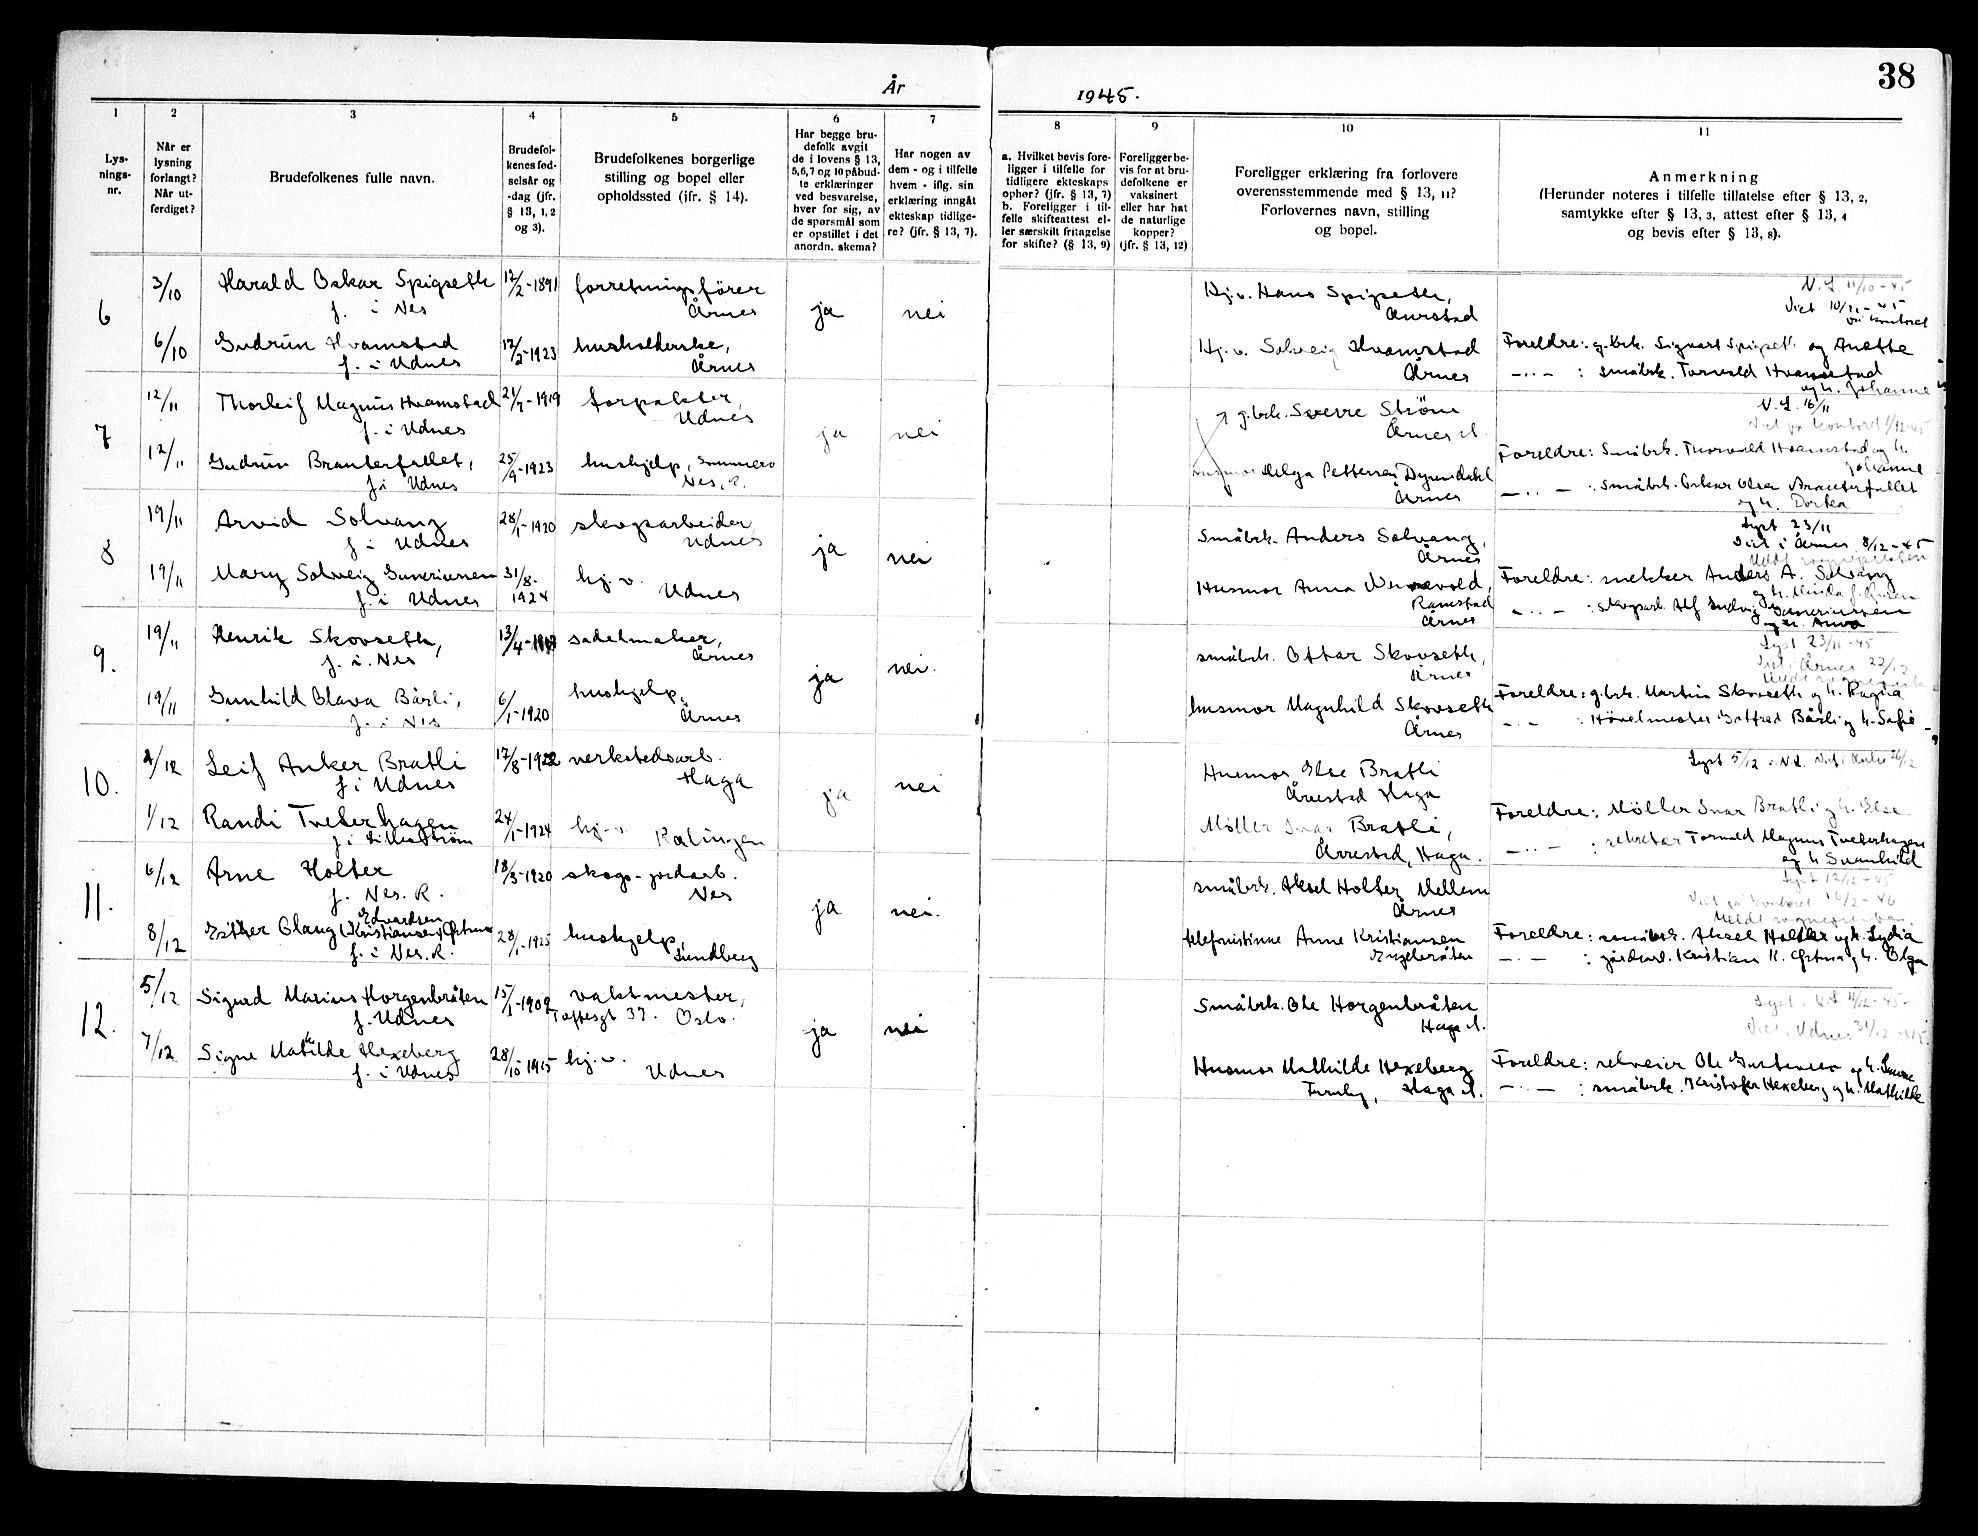 38
År 1945.
1 2 3 4 5 6 7 8 9 10 11
Lys-
nings-
nr.
Når er
lysning
forlangt?
Når ut-
ferdiget?
Brudefolkenes fulle navn.
Brudefol-
kenes fød-
selsår og
-dag (jfr.
§ 13, 1, 2
og 3).
Brudefolkenes borgerlige
stilling og bopel eller
opholdssted (ifr. § 14).
Har begge bru-
defolk avgit
de i lovens § 13,
5, 6, 7 og 10 påbud-
te erklæringer
ved besvarelse,
hver for sig, av
de spørsmål som
er opstillet i det
anordn. skema?
Har nogen av
dem - og i tilfelle
hvem - iflg. sin
erklæring inngått
ekteskap tidlige-
re? (jfr. § 13, 7).
a. Hvilket bevis fore-
ligger i tilfelle for
tidligere ekteskaps
ophør? (jfr. § 13, 7)
b. Foreligger i til-
felle skifteattest el-
ler særskilt fritagelse
for skifte? (§ 13, 9)
Foreligger be-
vis for at bru-
defolkene er
vaksinert
eller har hat
de naturlige
kopper?
(jfr. § 13, 12)
Foreligger erklæring fra forlovere
overensstemmende med § 13, 11?
Forlovernes navn, stilling
og bopel.
Anmerkning
(Herunder noteres i tilfelle tillatelse efter § 13, 2,
samtykke efter § 13, 3, attest efter § 13, 4
og bevis efter § 13, 8).
6
3/10 Harald Oskar Spigseth 17/2-1891 forretningsfører
f. i Nes Årnes ja nei
Hj.v. Hans Spigseth,
Aurstad
N.L. 11/10-45
Viet 10/11-45
på kontoret
6/10 Gudrun Hvamstad 17/2-1923 husholderske,
f. i Udnes Årnes
Hj.v. Solveig Hvamstad
Årnes
Foreldre: g.brk. Sigvart Spigseth og Anette
— „ — : småbrk. Torvald Hvamstad
og h. Johanne
7
12/11 Thorleif Magnus Hvamstad 21/7-1919 forpakter,
f. i Udnes Udnes ja nei
g.brk. Sverre Strøm
Årnes st.
N.L. 16/11
Viet på kontoret 1/12-45
12/11 Gudrun Branterfallet, 25/9-1923 hushjelp,
f. i Udnes Nes, R.
Husmor Helga Pettersen
Årnes
Foreldre: Småbrk. Thorvald Hvamstad og h.
Johanne
— „ — : småbrk. Oskar Olsen Branterfallet
og h. Dortea
8
19/11 Arvid Solvang 28/1-1920 skogsarbeider
f. i Udnes Udnes ja nei
Småbrk. Anders Solvang,
Årnes
Lyst 23/11
Viet i Årnes 8/12-45
19/11 Mary Solveig Guneriussen 31/8-1924 hj.v.
f. i Udnes Udnes
Husmor Anna
Ramstad
Årnes
Foreldre: snekker Anders A. Solvang
— „ — : skogsarb. Alf Ludvig Guneriussen
og h. Anna
9.
19/11 Henrik Skovseth, 13/4- sadelmaker,
f. i. Nes Årnes ja nei.
småbrk. Ottar Skovseth,
Årnes
Lyst 23/11-45
Viet i Årnes 22/12
19/11 Gunhild Olava Bårli, 6/1-1920 hushjelp,
f. i Nes Årnes
husmor Magnhild Skovseth
Årnes
Foreldre: g.brk. Martin Skovseth og h. Ragna
— „ — : Høvelmester Gotfred Bårli og h. Sofie
10.
4/12 Leif Anker Bratli 17/8-1922 verkstedsarb.
f. i Udnes Haga ja nei
Husmor Else Bratli
Årrestad Haga
Lyst 5/12 i N.L.
1/12 Randi Tveterhagen 24/1-1924 hj.v.
f. i Lillestrøm
Møller Ivar Bratli,
Årrestad, Haga.
Foreldre: Møller Ivar Bratli og h. Else
— „ — : sekretær Torvald Magnus Tveterhagen
og h. Svanhild
11.
6/12 Arne Holter 18/3-1920 skogs- jordarb.
f. Nes. R. Nes ja nei.
småbrk. Aksel Holter Mellem
Årnes
Lyst 12/12-45
Viet på kontoret
8/12 Esther Olaug (Kristiansen) Edvardsen 28/1-1925 hushjelp,
f. i Nes. R. Sundberg
telefonistinne Anne Kristiansen
Engebråten
Foreldre: småbrk. Aksel Holter og h. Lydia
— „ — : gårdarb. Kristian K. og h. Olga
12.
5/12 Sigurd Marius Horgenbråten 15/1-1909 vaktmester,
f. Udnes Toftesgt 37. Oslo. ja nei
Småbrk. Ole Horgenbråten
Haga st.
Viet i Udnes 31/12-45.
7/12 Signe Matilde Hexeberg 28/10 1915 hj.v.
f. i Udnes Udnes
Husmor Mathilde Hexeberg
Haga st.
Foreldre:
— „ — : småbrk. Kristofer Hexeberg og h. Mathilde